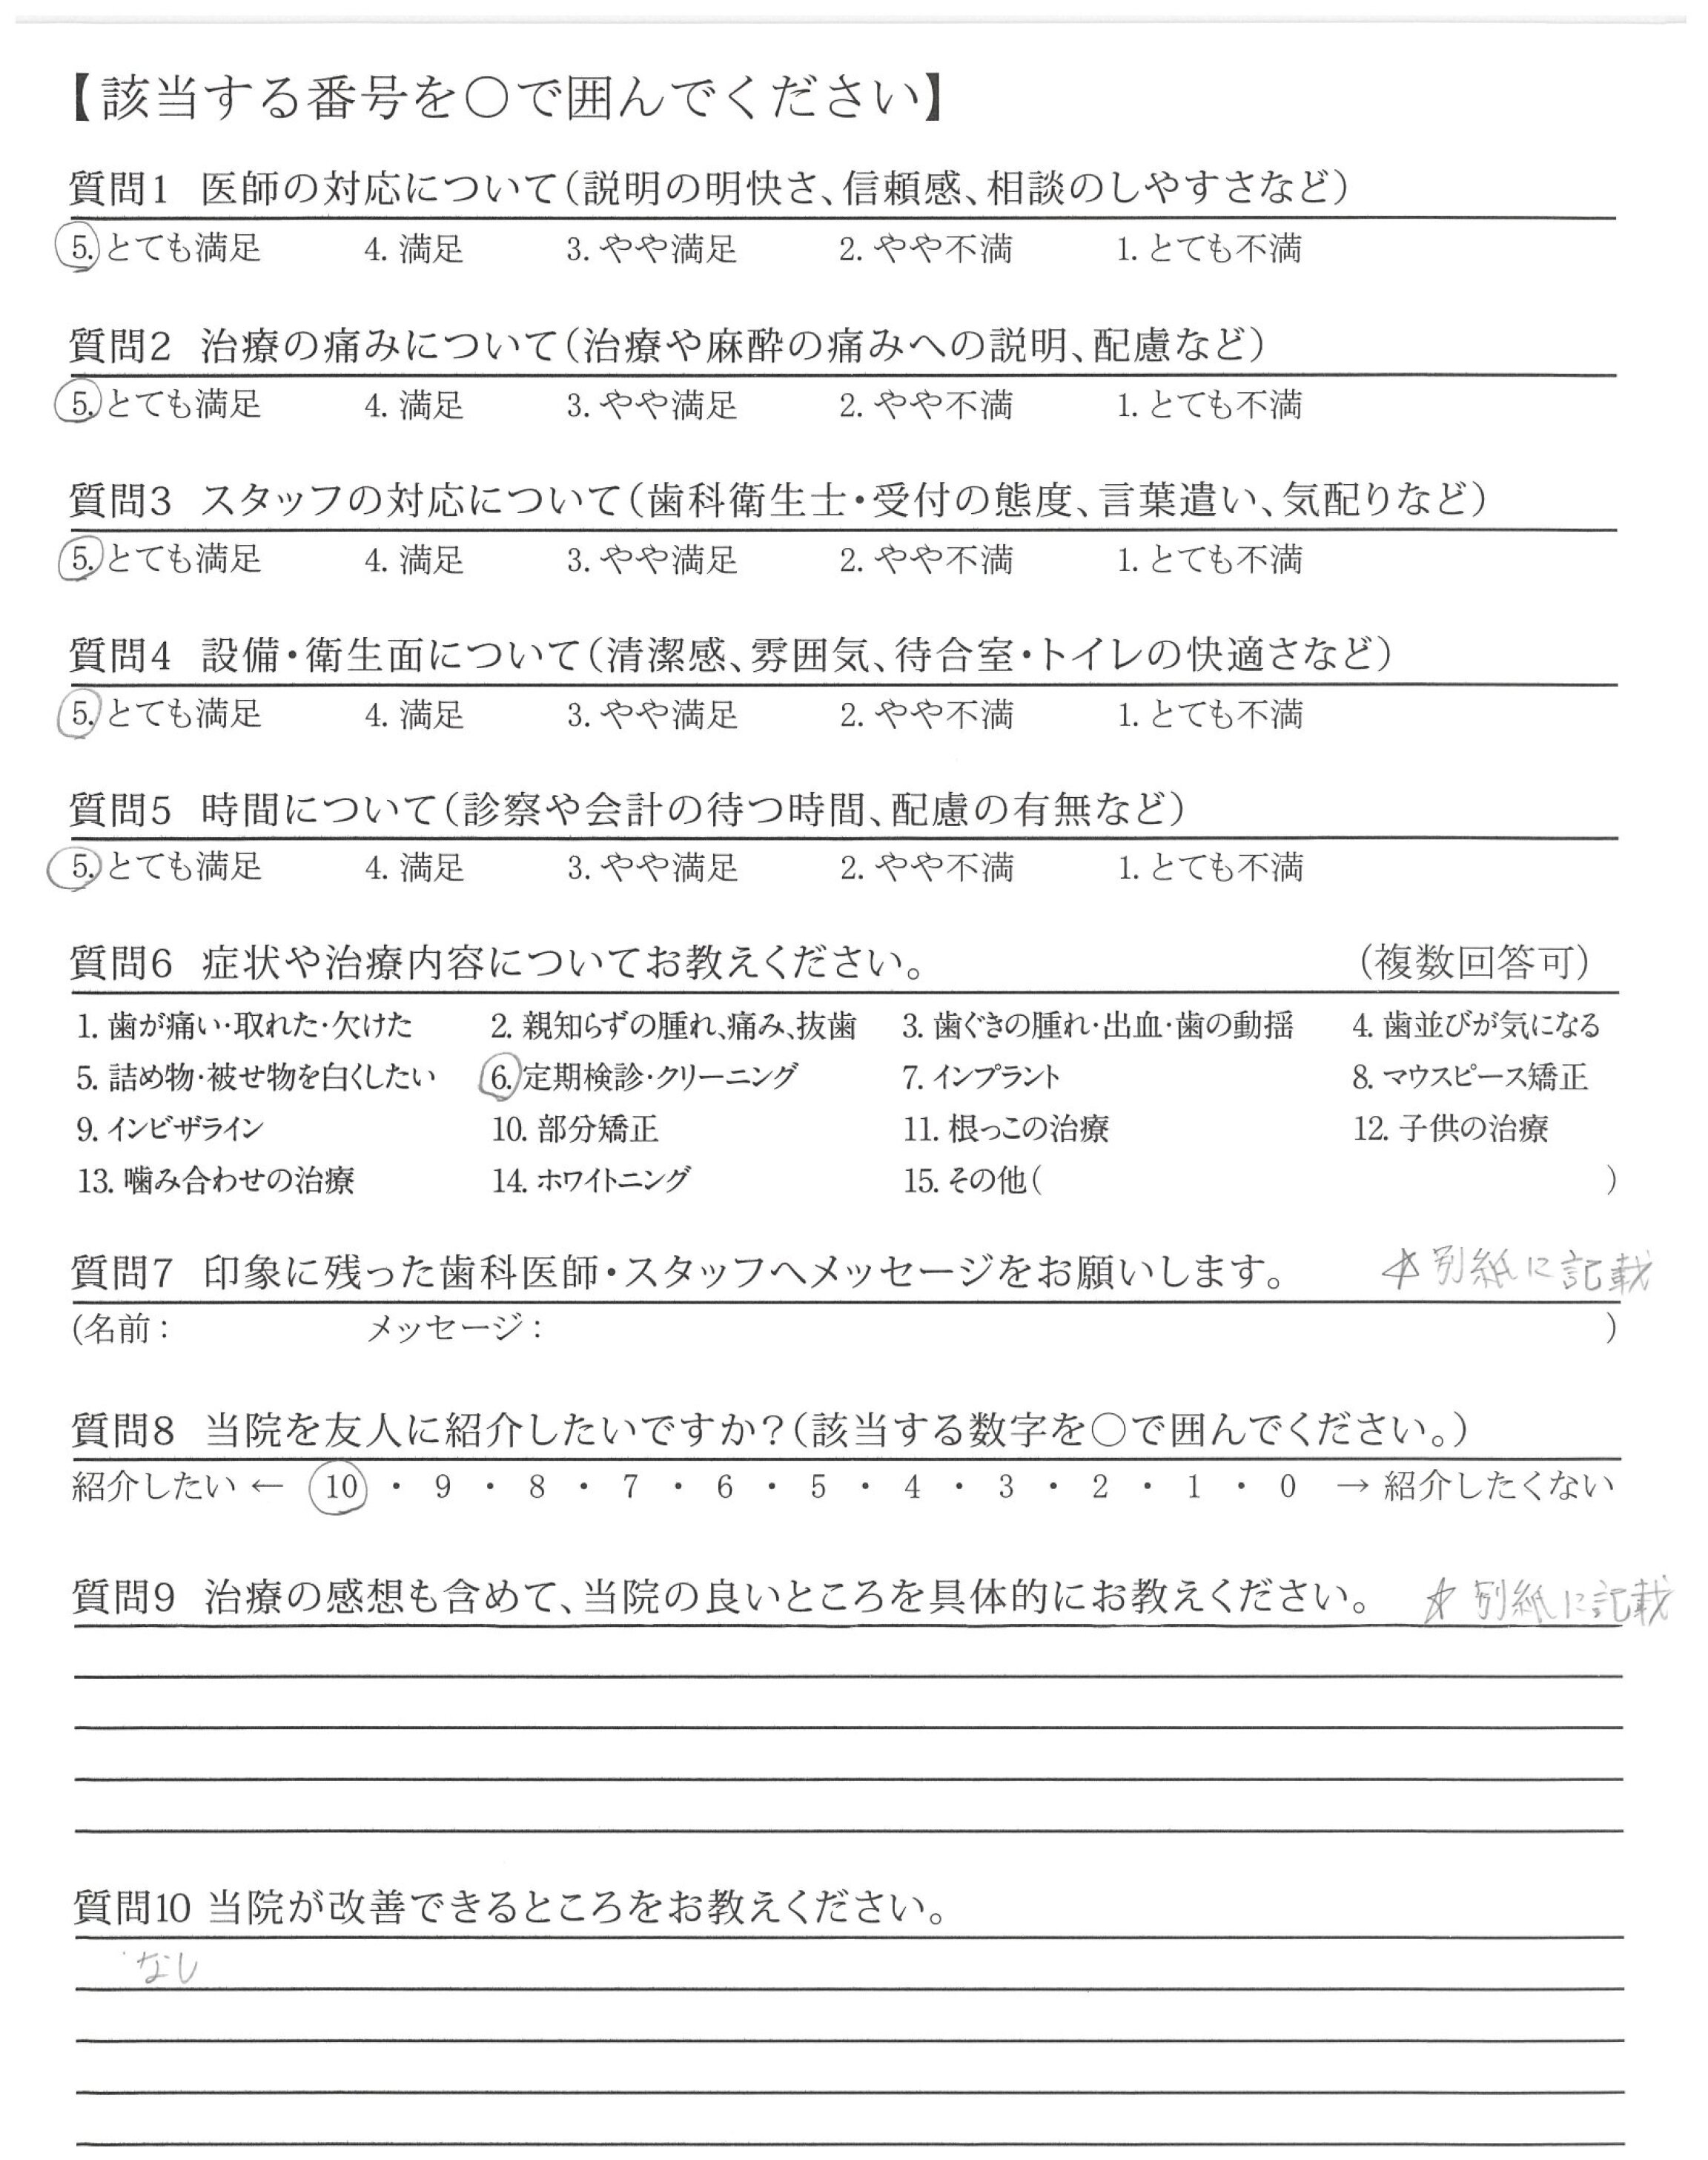 【該当する番号を〇で囲んでください】
質問1 医師の対応について（説明の明快さ、信頼感、相談のしやすさなど）
5. とても満足 4. 満足 3. やや満足 2. やや不満 1. とても不満
質問2 治療の痛みについて（治療や麻酔の痛みへの説明、配慮など）
5. とても満足 4. 満足 3. やや満足 2. やや不満 1. とても不満
質問3 スタッフの対応について（歯科衛生士・受付の態度、言葉遣い、気配りなど）
5. とても満足 4. 満足 3. やや満足 2. やや不満 1. とても不満
質問4 設備・衛生面について（清潔感、雰囲気、待合室・トイレの快適さなど）
5. とても満足 4. 満足 3. やや満足 2. やや不満 1. とても不満
質問5 時間について（診察や会計の待つ時間、配慮の有無など）
5. とても満足 4. 満足 3. やや満足 2. やや不満 1. とても不満
質問6 症状や治療内容についてお教えください。 （複数回答可）
1. 歯が痛い・取れた・欠けた 2. 親知らずの腫れ、痛み、抜歯 3. 歯ぐきの腫れ・出血・歯の動揺 4. 歯並びが気になる
5. 詰め物・被せ物を白くしたい 6. 定期検診・クリーニング 7. インプラント 8. マウスピース矯正
9. インビザライン 10. 部分矯正 11. 根っこの治療 12. 子供の治療
13. 噛み合わせの治療 14. ホワイトニング 15. その他（ ）
質問7 印象に残った歯科医師・スタッフへメッセージをお願いします。 ☆別紙に記載
(名前： メッセージ： ）
質問8 当院を友人に紹介したいですか？（該当する数字を〇で囲んでください。）
紹介したい ← 10 ・ 9 ・ 8 ・ 7 ・ 6 ・ 5 ・ 4 ・ 3 ・ 2 ・ 1 ・ 0 → 紹介したくない
質問9 治療の感想も含めて、当院の良いところを具体的にお教えください。 ☆別紙に記載
質問10 当院が改善できるところをお教えください。
なし